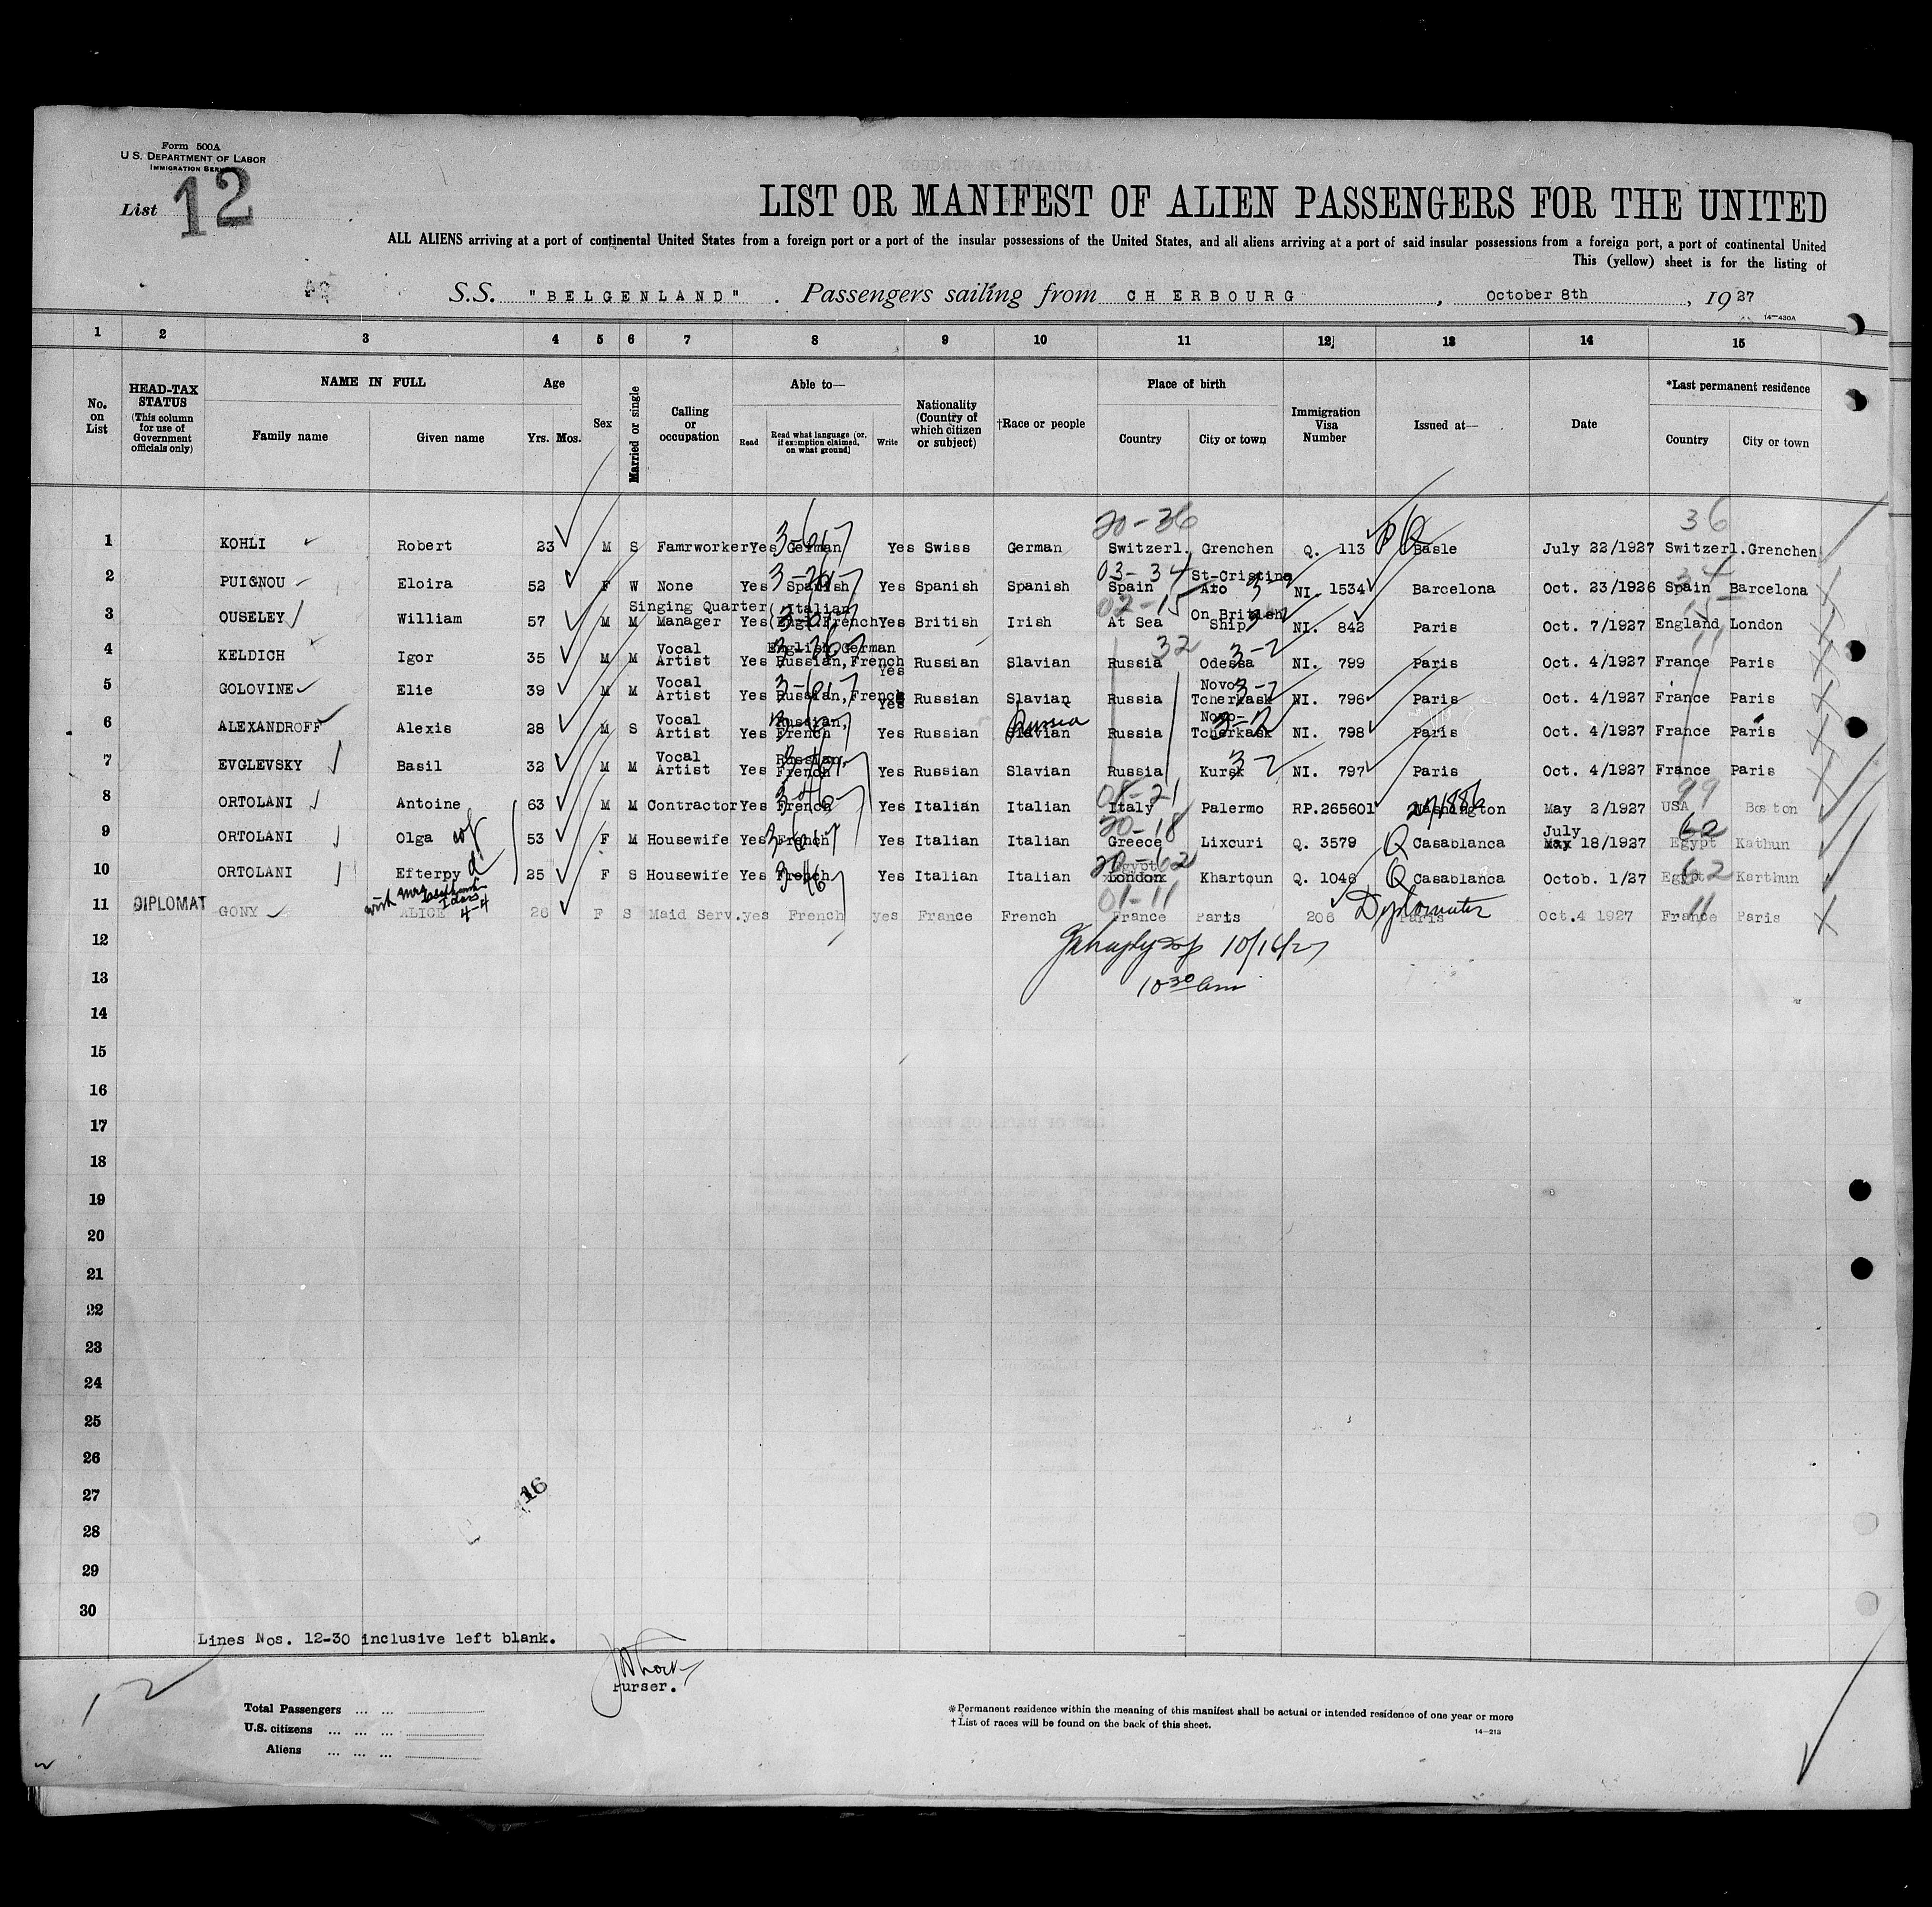 Form 500A
U.S. DEPARTMENT OF LABOR
IMMIGRATION
List 12
LIST OR MANIFEST OF ALIEN PASSENGERS FOR THE UNITED
ALL ALIENS arriving at a port of continental United States from a foreign port or a port of the insular possessions of the United States, and all aliens arriving at a port of said insular possessions from a foreign port, a port of continental United
This (yellow) sheet is for the listing of
S.S. "BELGENLAND" . Passengers sailing from CHERBOURG , October 8th , 1927
14-430A
1 2 3 4 5 6 7 8 9 10 11 12 13 14 15
No. on List
HEAD-TAX STATUS (This column for use of Government officials only)
NAME IN FULL
Family name Given name
Age
Yrs. Mos.
Sex
Married or single
Calling or occupation
Able to—
Read Read what language (or, if exemption claimed, on what ground) Write
Nationality (Country of which citizen or subject)
†Race or people
Place of birth
Country City or town
Immigration Visa Number
Issued at—
Date
*Last permanent residence
Country City or town
20-36 36
1 KOHLI Robert 23 M S Famrworker Yes German Yes Swiss German Switzerl. Grenchen Q. 113 Basle July 22/1927 Switzerl. Grenchen
03-34 St-Cristina 34
2 PUIGNOU Eloira 52 F W None Yes Spanish Yes Spanish Spanish Spain Aro NI. 1534 Barcelona Oct. 23/1926 Spain Barcelona
Singing Quarter (Italian 02-15 On British 15
3 OUSELEY William 57 M M Manager Yes (Engl.French Yes British Irish At Sea Ship NI. 842 Paris Oct. 7/1927 England London
Vocal English,German 32 3-2 11
4 KELDICH Igor 35 M M Artist Yes Russian,French Yes Russian Slavian Russia Odessa NI. 799 Paris Oct. 4/1927 France Paris
Vocal Novo 3-2
5 GOLOVINE Elie 39 M M Artist Yes Russian,French Yes Russian Slavian Russia Tcherkask NI. 796 Paris Oct. 4/1927 France Paris
Vocal Russian, Russia Novo- 3-2
6 ALEXANDROFF Alexis 28 M S Artist Yes French Yes Russian Slavian Russia Tcherkask NI. 798 Paris Oct. 4/1927 France Paris
Vocal Russian, 3-2
7 EVGLEVSKY Basil 32 M M Artist Yes French Yes Russian Slavian Russia Kursk NI. 797 Paris Oct. 4/1927 France Paris
3-46 21 99
8 ORTOLANI Antoine 63 M M Contractor Yes French Yes Italian Italian Italy Palermo RP.265601 Washington May 2/1927 USA Boston
20-18 July 62
9 ORTOLANI Olga wf 53 F M Housewife Yes French Yes Italian Italian Greece Lixcuri Q. 3579 Q Casablanca May 18/1927 Egypt Kathun
20-62 Egypt 62
10 ORTOLANI Efterpy d 25 F S Housewife Yes French Yes Italian Italian London Khartoun Q. 1046 Q Casablanca Octob. 1/27 Egypt Karthun
with 4-4 01-11 11
11 DIPLOMAT GONY ALICE 26 F S Maid Serv. yes French yes France French France Paris 206 Paris Oct.4 1927 France Paris
12
10/16/27
13
10 30 am
14
15
16
17
18
19
20
21
22
23
24
25
26
27
16
28
29
30
Lines Nos. 12-30 inclusive left blank.
Purser.
12
Total Passengers ... ...
U.S. citizens ... ... ...
Aliens ... ... ...
*Permanent residence within the meaning of this manifest shall be actual or intended residence of one year or more
†List of races will be found on the back of this sheet.
14-213